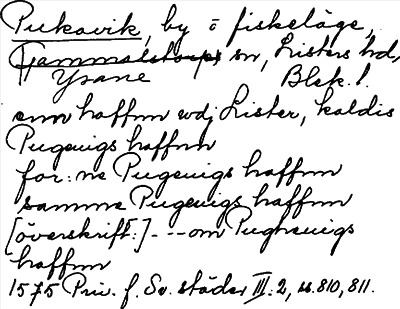 Pukavik, by o fiskeläge,
Gammalstorps sn, Listers hd,
Ysane Blek. l.
emn haffnn wdj Lister, kaldis
Pugeuigs haffnn
for:ne Pugeuigs haffnn
samme Pugeuigs haffnn
[överskrift:] - - - om Pugheuigs
haffnn
1575 Priv. f. Sv. städer III:2, s. 810, 811.